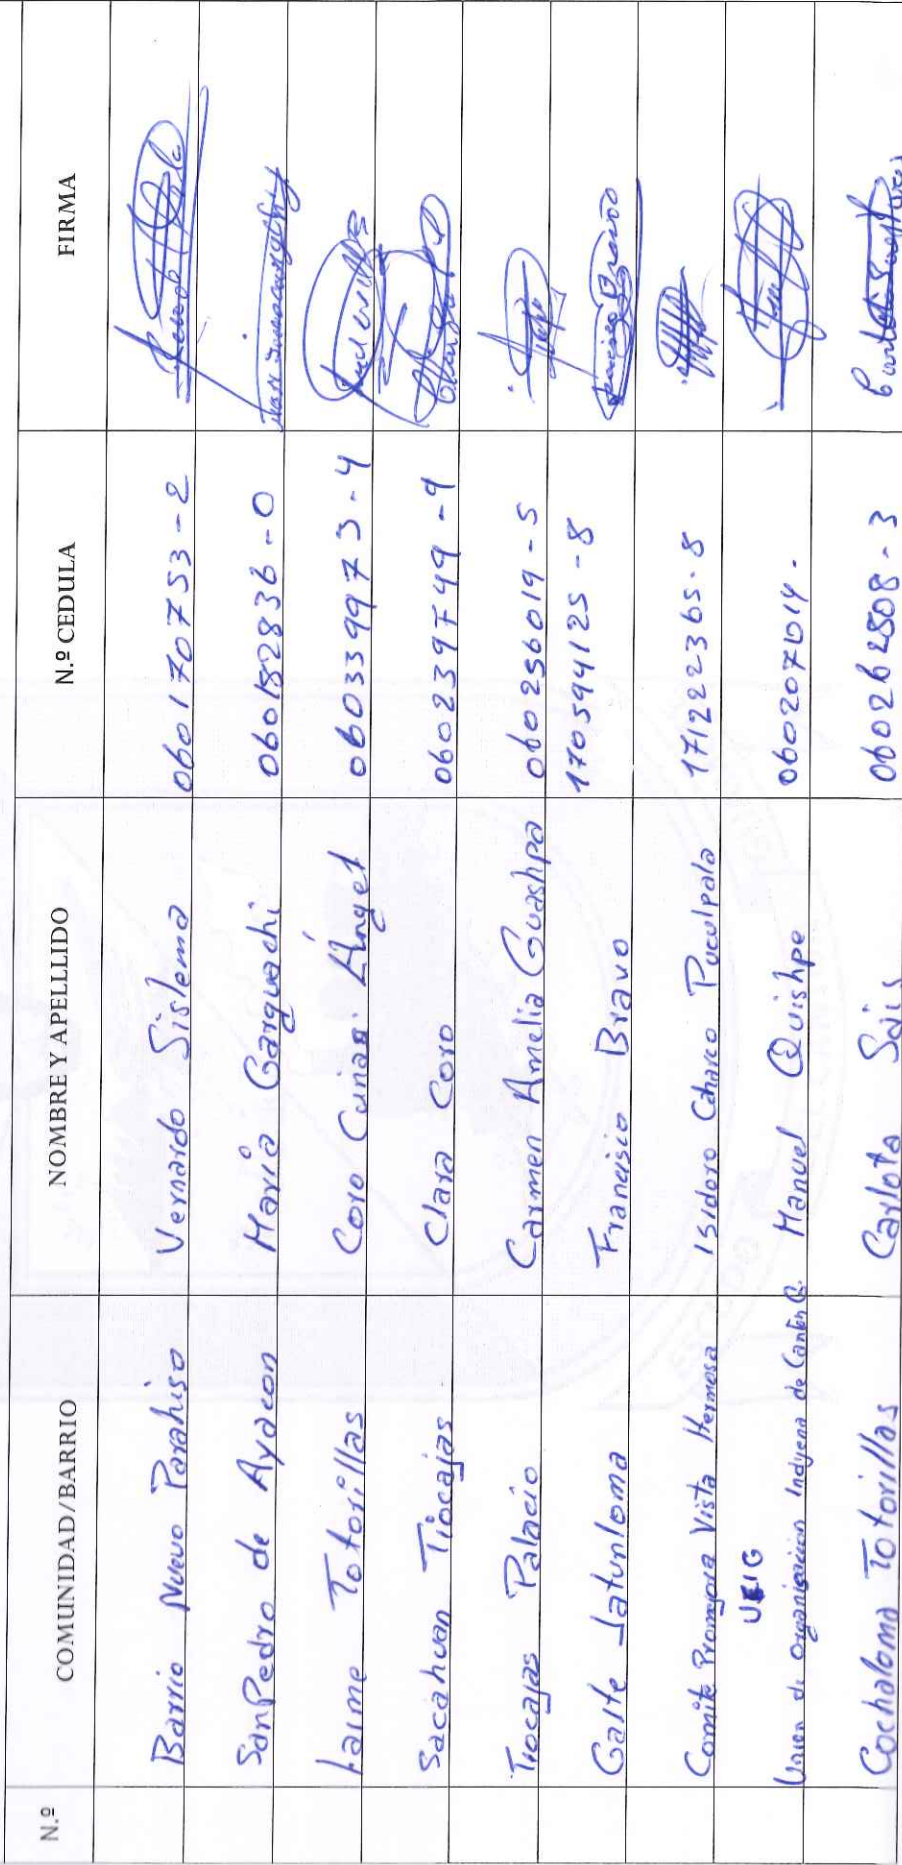 N.º COMUNIDAD/BARRIO NOMBRE Y APELLLIDO N.º CEDULA FIRMA
Barrio Nuevo Parahiso Vernardo Sislema 060170753-2
San Pedro de Ayacon María Garguachi 060182836-0
Laime Totorillas Coro Cunas Ángel 060339973-4
Sacahuan Tiocajas Clara Coro 060239749-9
Tiocajas Palacio Carmen Amelia Guashpa 060256019-5
Galte Jatunloma Francisco Bravo 170594125-8
Comite Promejora Vista Hermosa Isidoro Caharco Puculpala 171222365-8
UEIG
Union de Organizacion Indigena de Canton G. Manuel Quishpe
Cochaloma Totorillas Carlota Sais 060262508-3